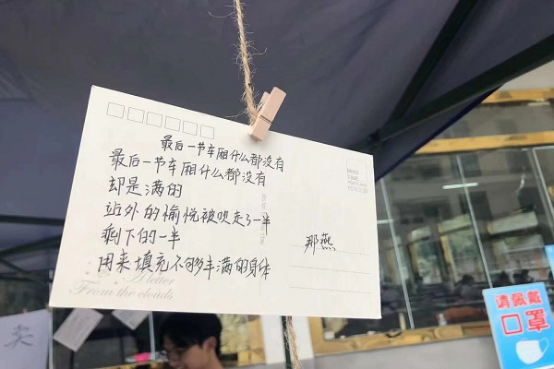 最后一节车厢什么都没有
最后一节车厢什么都没有
却是满的
站外的愉悦被吹走了一半
剩下的一半
用来填充不够丰满的身体
那燕
A letter
From the clouds
请佩戴
口罩